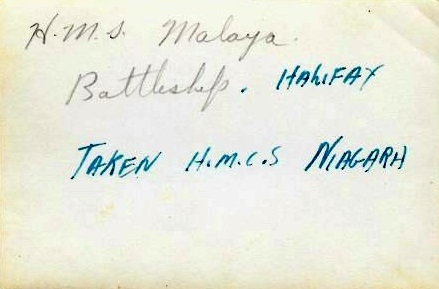 H.M.S. Malaya.
Battleship. HALIFAX
TAKEN H.M.C.S NIAGARA